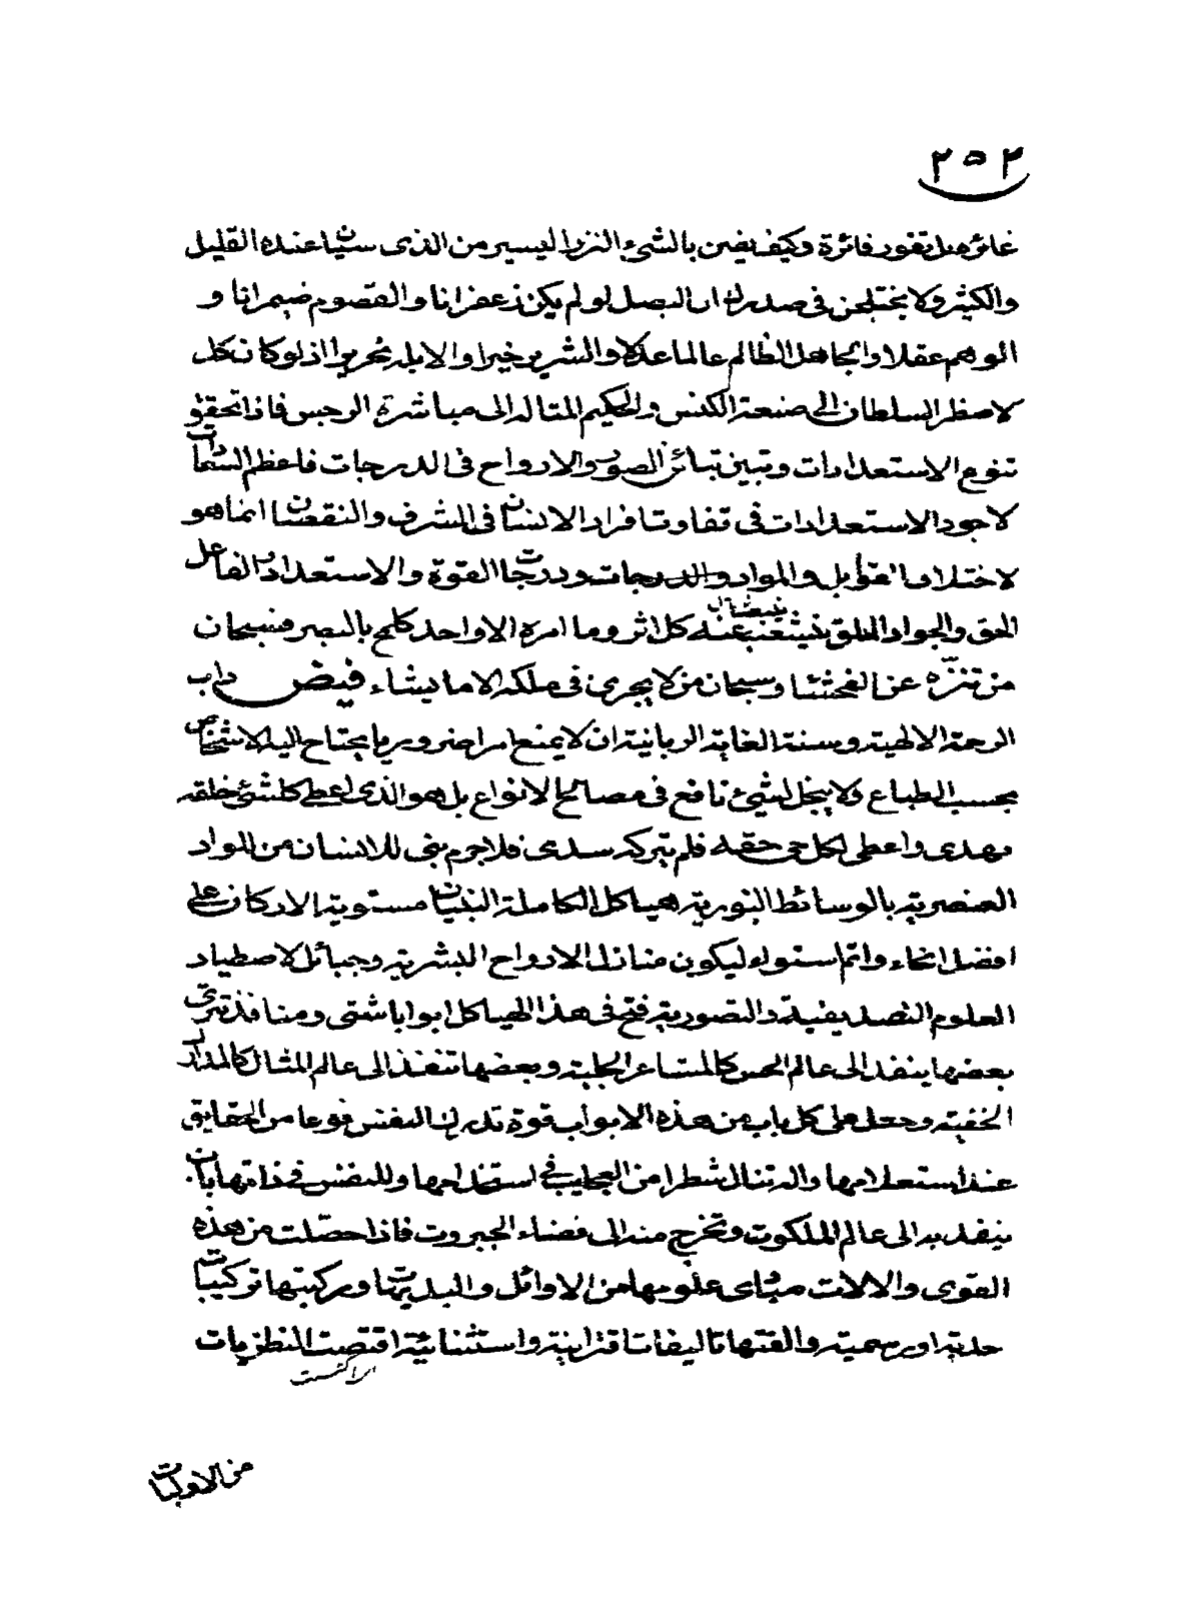 ٢٥٢
وكيف يضن بالشيء النزر اليسير من الذى سيان عنده القليل
والكثير ولا يختلجن فى صدرك ان البصل لو لم يكن زعفرانا والقصوم ضيمرانا و
الوهم عقلا والجاهل الظالم عالما عدلا والشرير خيرا والابله نحريرا اذ لو كان كل
لاضطر السلطان الى صنعة الكنس والحكيم المتاله الى مباشرة الرجس فاذا تحقق
تنوع الاستعدادات وتبين تباين الصور والارواح فى الدرجات فاعظم السعادات
لاجود الاستعدادات فى تفاوت افراد الانسان فى الشرف والنقصان انما هو
لاختلاف القوابل والمواد والدرجات ودرجات القوة والاستعداد والفاعل
الحق والجواد المطلق عنه كل اثر وما امره الا واحد كلمح بالبصر فسبحان
من تنزه عن الفحشاء وسبحان من لا يجرى فى ملكه الا ما يشاء فيض داب
الرحمة الالهية وسنة العناية الربانية ان لا يمنع امرا ضروريا يحتاج اليه الاشخاص
بحسب الطباع ولا يبخل لشئ نافع فى مصالح الانواع بل هو الذى اعطى كل شئ خلقه
وهدى واعطى لكل حى حقه فلم يتركه سدى فلاجرم بنى للانسان من المواد
العنصرية بالوسائط النورية هياكل الكاملة البنيان مستوية الاركان على
افضل انحاء واتم استواء ليكون منازل الارواح البشرية وحبائل لاصطياد
العلوم التصديقية والتصورية فتح فى هذا الهياكل ابوابا شتى ومنافذ تترى
بعضها ينفذ الى عالم الحس كالمشاعر الجلية وبعضها تنفذ الى عالم المثال كالمدارك
الخفية وجعل على كل باب من هذه الابواب قوة تدرك النفس نوعا من الحقايق
عند استعلامها والدتنال شطرا من العجايب فى استخدامها وللنفس فى ذاتها بابان
ينفذ به الى عالم الملكوت وتخرج منه الى فضاء الجبروت فاذا حصلت من هذه
القوى والالات مبادى علومها من الاوائل والبديهيات وركبتها تركيبات
حدية او رسمية والفتها تاليفات اقترانية واستثنائية اقتضت النظريات
اكتسبت
من الاوليات